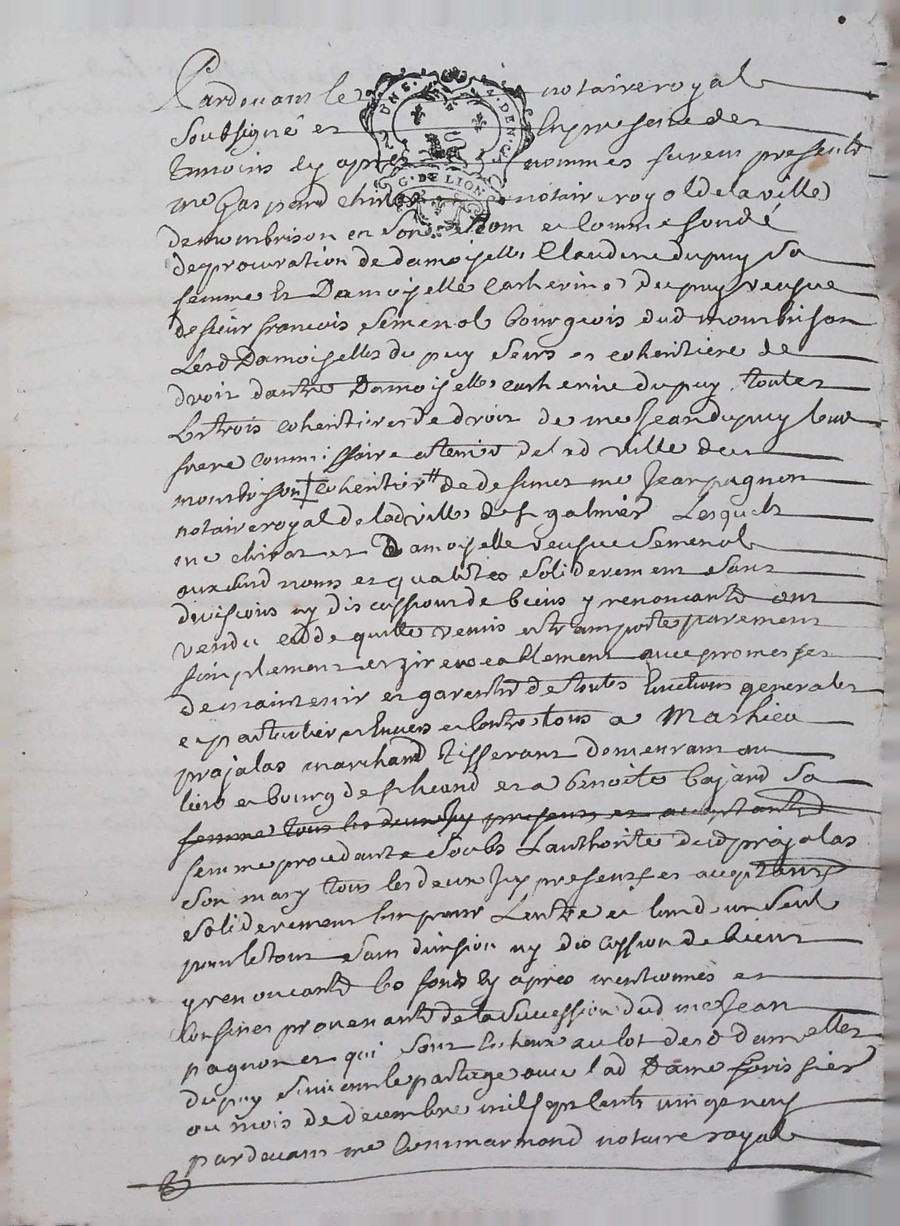 Pardevant le notaire royal
Soubsigné et en presence des
temoins cy apres nommes furent presents
me Gaspard Chirat notaire royal de la ville
G. DE LION
de mombrison en son nom et comme fondé
de procuration de damoiselle Claudine dupuy sa
femme et Damoiselle Catherine dupuy veufve
de sieur françois Semenol bourgeois dud mombrison
Lesd Damoiselles dupuy seurs et coheritiere de
droit dautre Damoiselle catherine dupuy, toutes
Les trois coheritieres de droit de me Jean dupuy leur
frere commissaire de lad ville de
montbrison coheritier de defunct me Jean pagnon
notaire royal de lad ville de st galmier Lesquels
me chirat et Damoiselle veufve Semenol
aux susd noms et qualites soliderement sans
division ny discussion de biens y renoncants ont
vendu cedde quitte remis et transporte purement
simplement et irrevocablement avec promesses
de maintenir et garentir de toutes evictions generales
et particulier envers et contre tous a Mathieu
prajalas marchand tisserant demeurant au
lieu et bourg de st heand et a benoite bajard sa
femme tous les deux icy presents et acceptants
femme procedante soubs Lauthorité dud prajalas
son mary tous les deux icy presents et acceptants
soliderement lun pour Lautre et lun d un seul
pour le tout sans division ny discussion de biens
y renoncants les fonds cy apres mentionnes et
confines provenants de la succession dud me Jean
pagnon et qui sont escheux au lot desd damelles
dupuy suivant le partage avec lad Dame
au mois de decembre mil sept cents vingt neuf
pardevant me Commarmond notaire royal